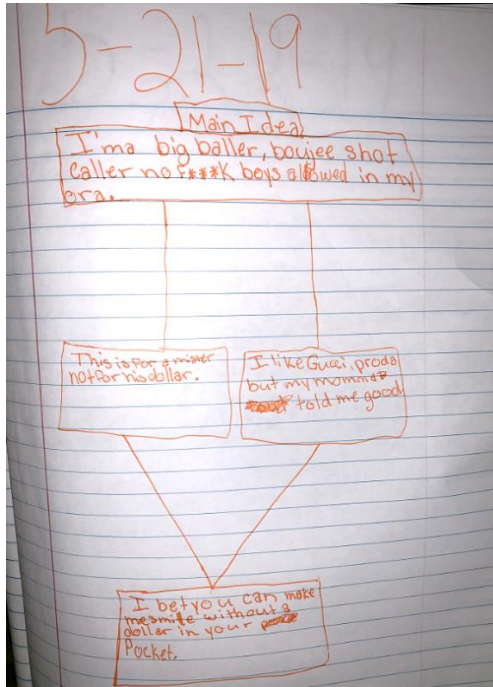 5-21-19
Main Idea
I'ma big baller, boujee shot
caller no f***k boys allowed in my
era.
This is for a mister
not for his dollar.
I like Gucci, proda
but my momma
told me good
I bet you can make
me smile without a
dollar in your
Pocket.